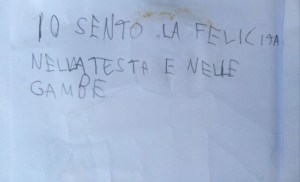 IO SENTO LA FELICITA
NELLA TESTA E NELLE
GAMBE